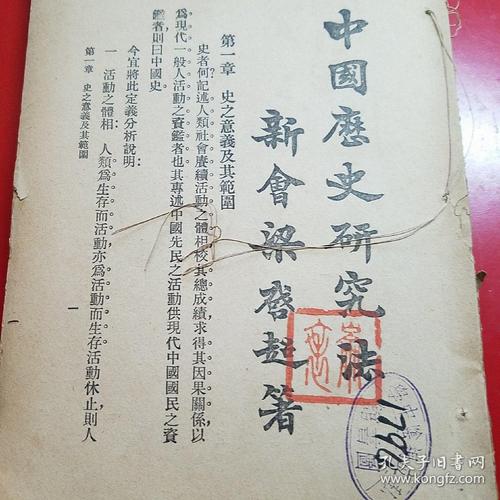 中國歷史研究法
新會梁啓超著
第一章 史之意義及其範圍
史者何？記述人類社會賡續活動之體相，校其總成績，求得其因果關係，以
爲現代一般人活動之資鑑者也。其專述中國先民之活動供現代中國國民之資
鑑者，則曰中國史。
今宜將此定義分析說明：
一 活動之體相：人類爲生存而活動，亦爲活動而生存。活動休止，則人
第一章 史之意義及其範圍
一
17992
孔夫子旧书网
www.kongfz.com